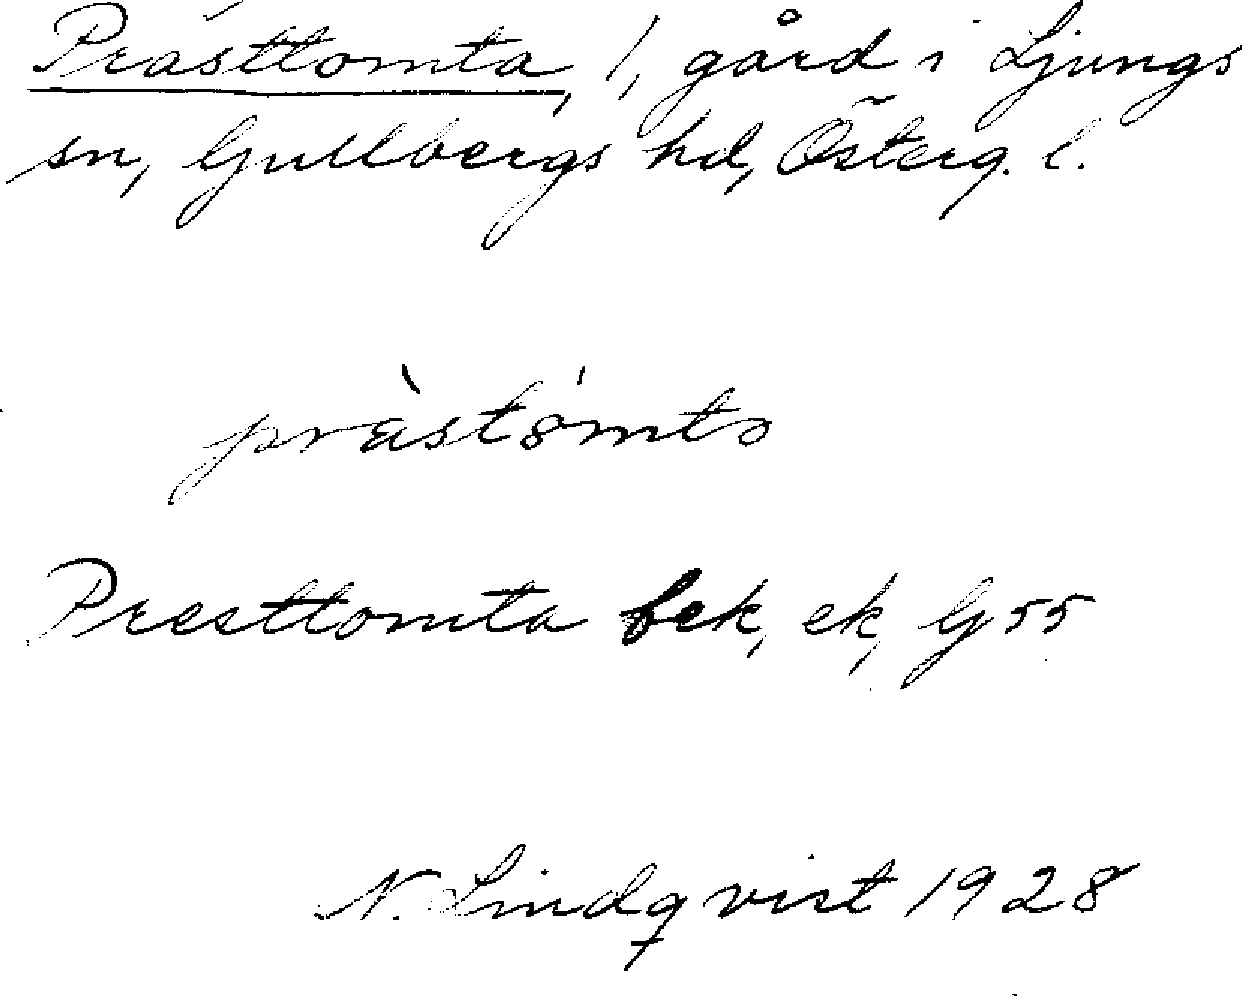 Prästtomta, 1, gård i Ljungs
sn, Gullbergs hd, Österg. l.
Presttomta fek, ek, G 55
N. Lindqvist 1928